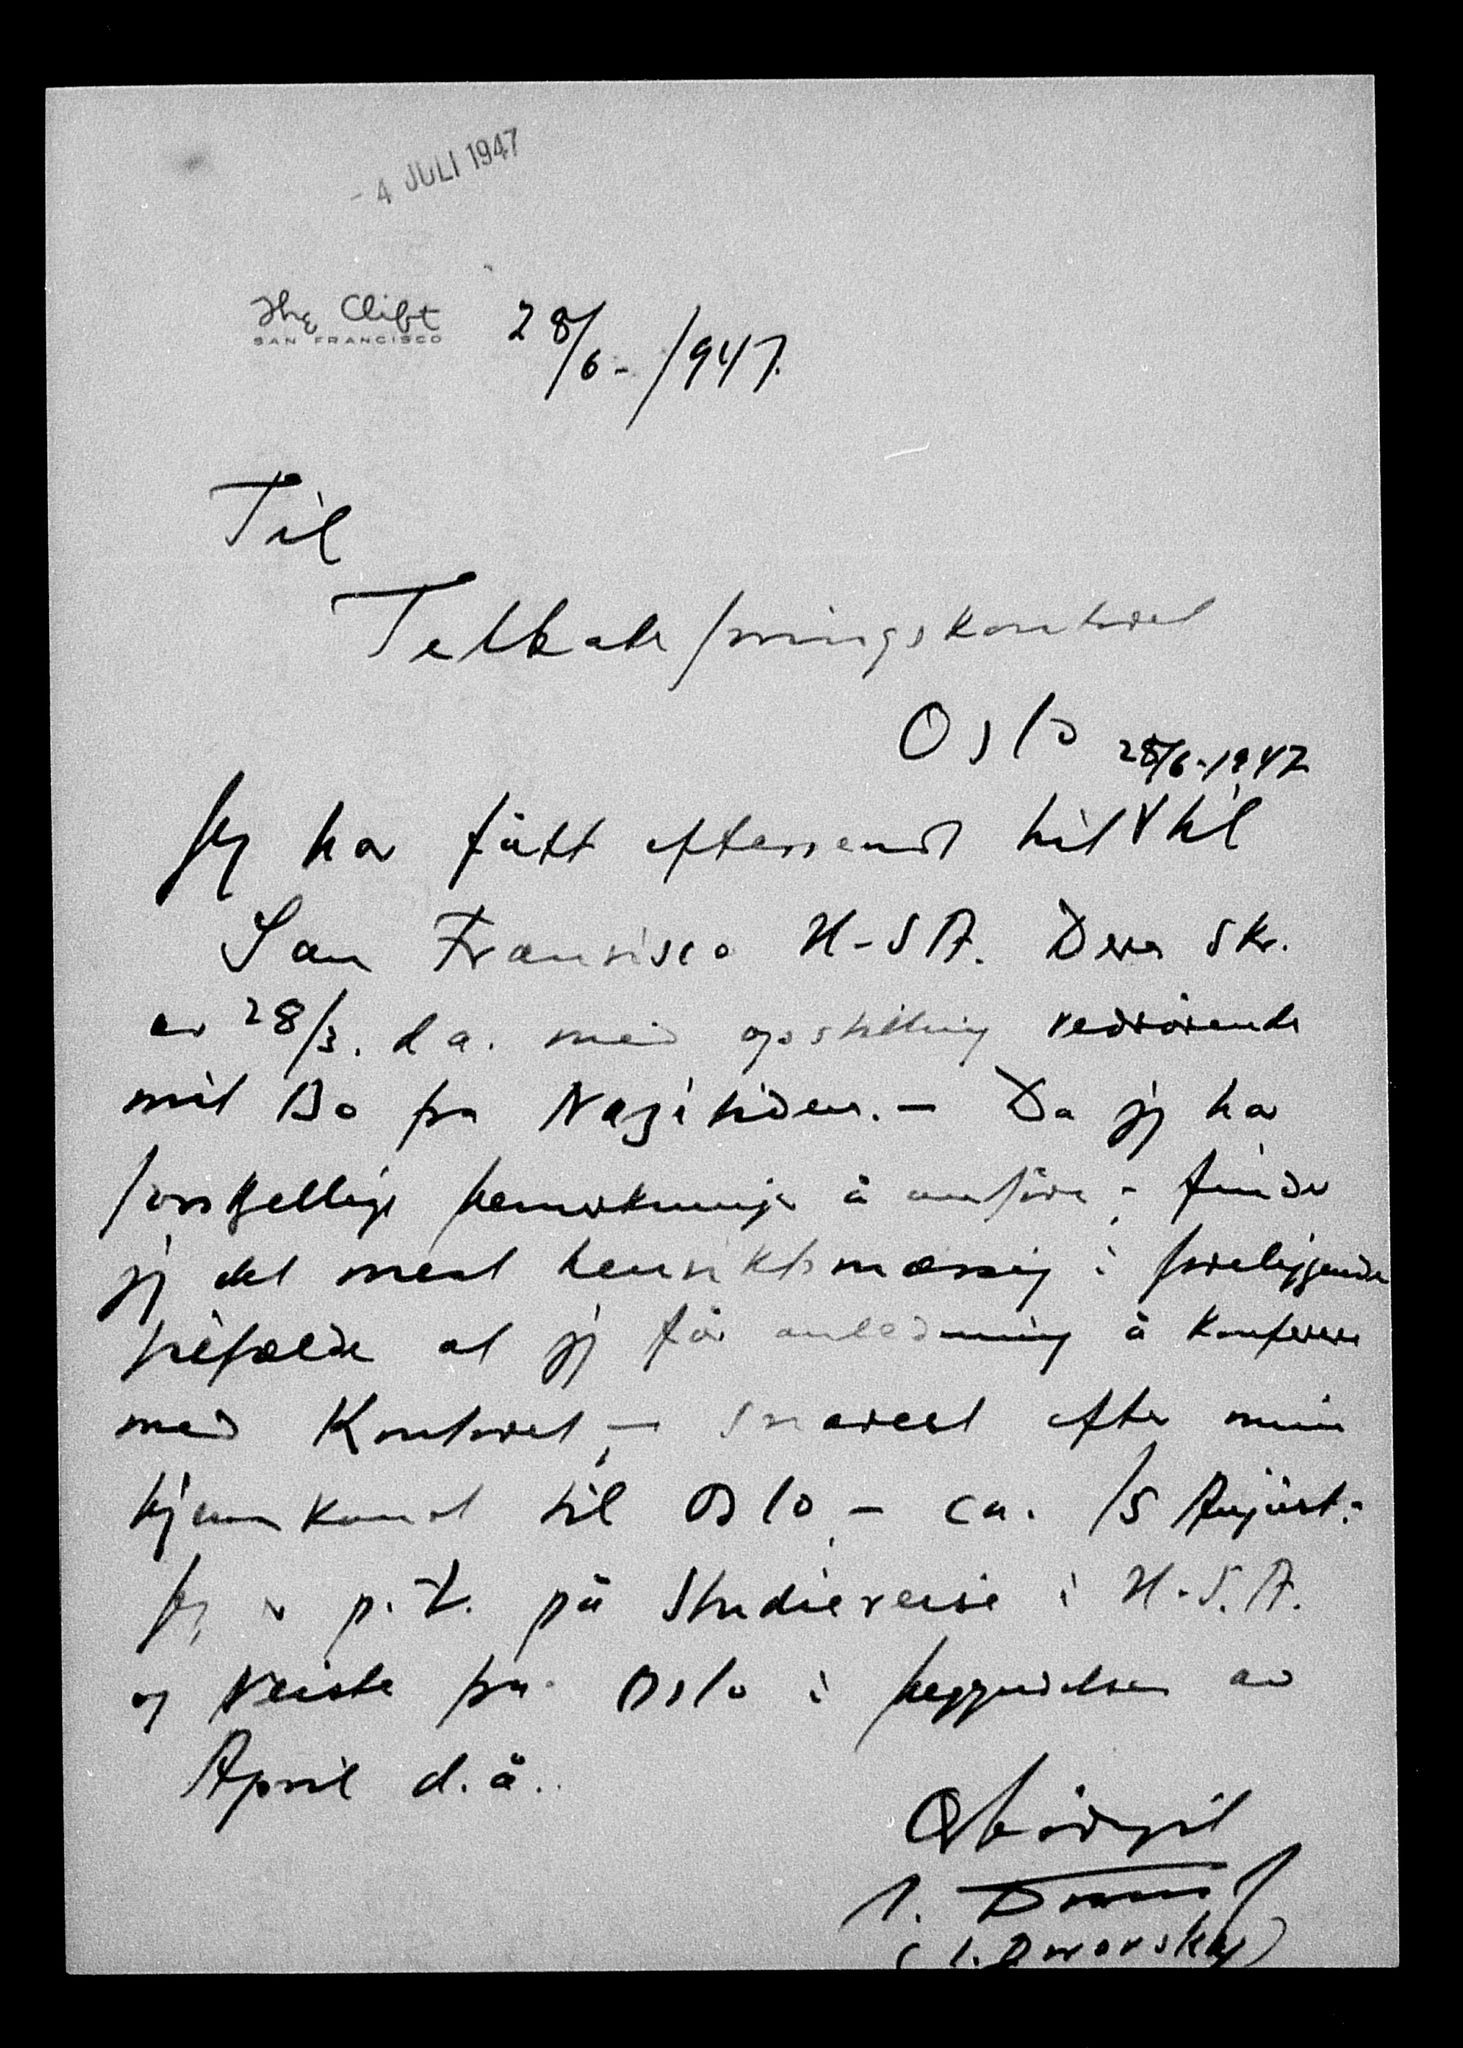 - 4 JULI 1947
The Clift
SAN FRANCISCO
28/6-/1947.
Til
Tilbakeføringskontoret
Oslo
28/6-1947
Jeg har fått eftersendt hit til
San Francisco U-S A. Deres skr.
av 28/3. d a. med opstilling vedrørende
mit Bo fra Nazitiden. - Da jeg har
forskjellige bemerkninger å anføre, - finder
jeg det mest hensiktsmæssig i foreliggende
tilfælde at jeg får anledning å konferere
med Kontoret, - snarest efter min
hjemkomst til Oslo, - ca. 15 August. -
Jeg er p.t. på Studiereise i U.S.A.
og reiste fra Oslo i begyndelsen av
April d.å..
Ærbödigst
(I. Dworsky)